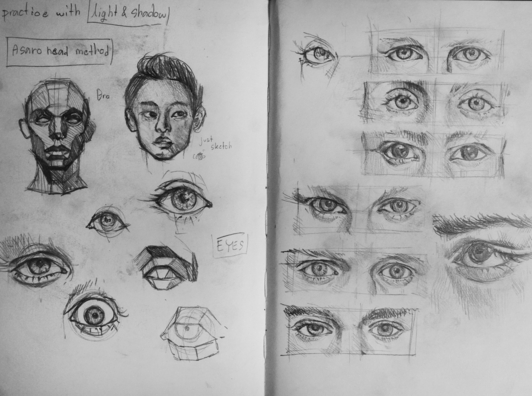 practice with light & shadow
Asaro head method
Bro
just
sketch
EYES